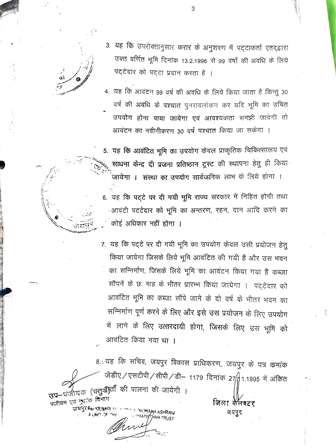 3
3. यह कि उपरोक्तानुसार करार के अनुसरण में पट्टाकर्ता एतद्द्वारा
उक्त वर्णित भूमि दिनांक 13.2.1996 से 99 वर्षों की अवधि के लिये
पट्टेदार को पट्टा प्रदान करता है ।
4. यह कि आवंटन 99 वर्ष की अवधि के लिये किया जाता है किन्तु 30
वर्ष की अवधि के पश्चात पुनरावलोकन कर यदि भूमि का उचित
उपयोग होना पाया जायेगा एवं आवश्यकता समझी जावेगी तो
आवंटन का नवीनीकरण 30 वर्ष पश्चात किया जा सकेगा ।
5. यह कि आवंटित भूमि का उपयोग केवल प्राकृतिक चिकित्सालय एवं
साधना केन्द्र दी प्रजना प्रतिष्ठान ट्रस्ट की स्थापना हेतु ही किया
जायेगा । संस्था का उपयोग सार्वजनिक लाभ के लिये होगा ।
6. यह कि पट्टे पर दी गयी भूमि राज्य सरकार में निहित होगी तथा
आवंटी पटटेदार को भूमि का अन्तरण, रहन, दान आदि करने का
कोई अधिकार नहीं होगा ।
7. यह कि पट्टे पर दी गयी भूमि का उपयोग केवल उसी प्रयोजन हेतु
किया जायेगा जिसके लिये भूमि आवंटित की गयी है और उस भवन
का सन्निर्माण, जिसके लिये भूमि का आवंटन किया गया है कब्जा
सौंपने के छः माह के भीतर प्रारम्भ किया जायेगा । पट्टेदार को
आवंटित भूमि का कब्जा सौंपे जाने के दो वर्ष के भीतर भवन का
सन्निर्माण पूर्ण करने के लिए और इसे उस प्रयोजन के लिए उपयोग
में लाने के लिए उत्तरदायी होगा, जिसके लिए उस भूमि को
आवंटित किया गया था ।
8. यह कि सचिव, जयपुर विकास प्राधिकरण, जयपुर के पत्र क्रमांक
जेडीए/एसटीपी/सीपी/डी- 1179 दिनांक 27.11.1995 में अंकित
शर्तों की पालना की जायेगी ।
उप-पंजीयक (चतुर्थ)
जिला कलक्टर
जयपुर